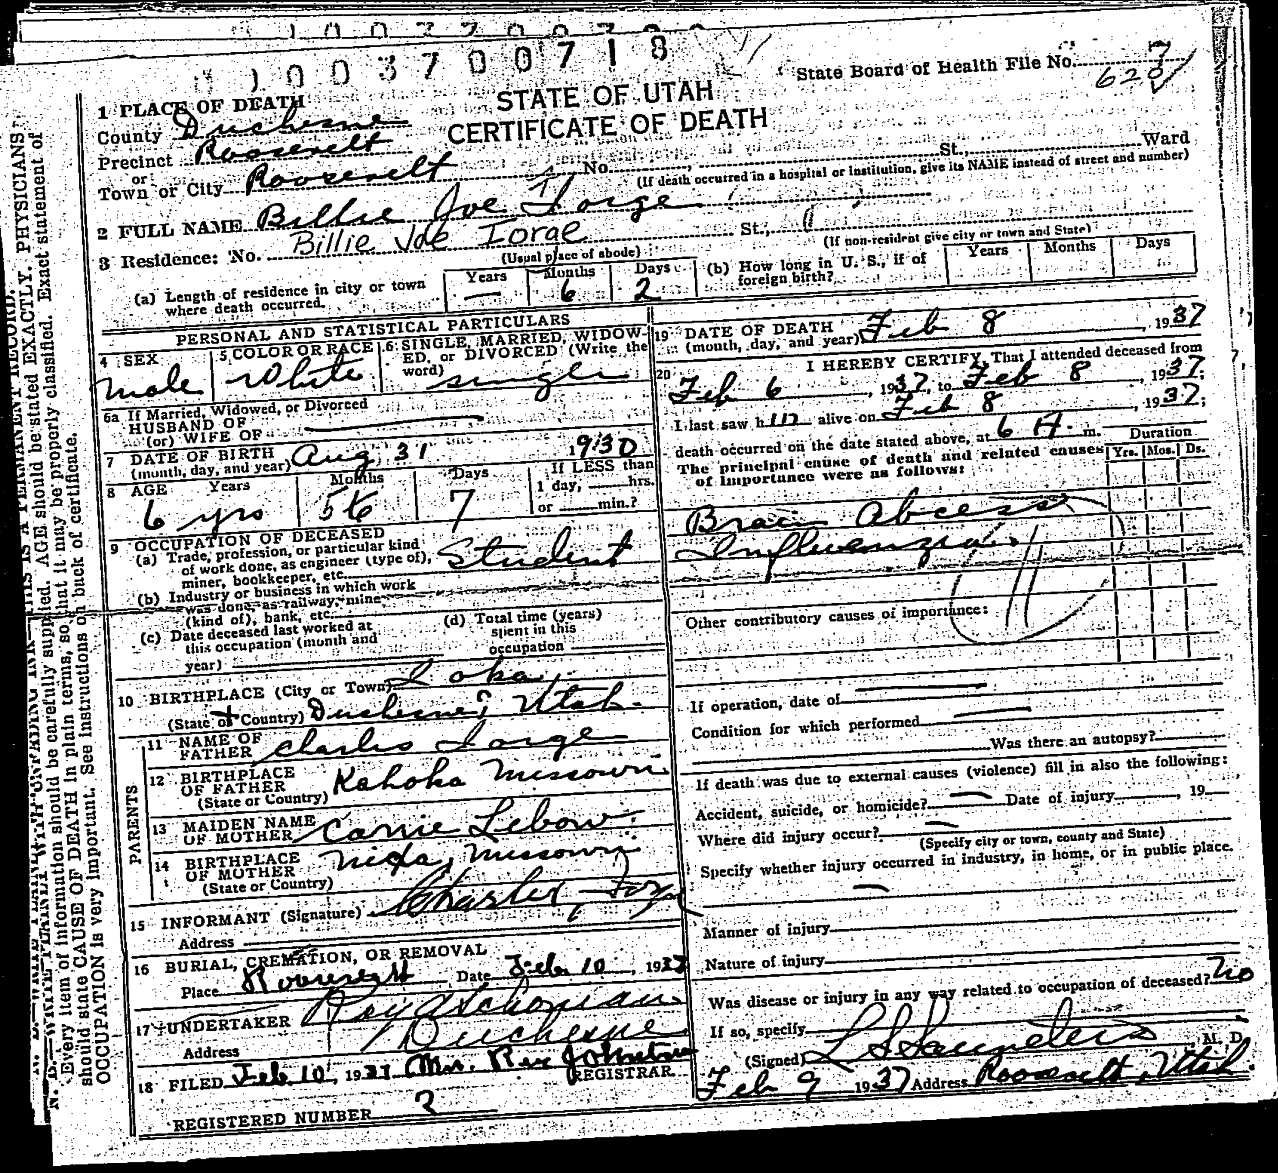 1003700718
State Board of Health File No.
STATE OF UTAH
CERTIFICATE OF DEATH
1 PLACE OF DEATH
County Duchesne
Precinct Roosevelt
or
Town or City Roosevelt No. St., Ward
(If death occurred in a hospital or institution, give its NAME instead of street and number)
2 FULL NAME Billie Joe Iorge
Billie Joe Iorge
3 Residence: No. St.,
(Usual place of abode) (If non-resident give city or town and State)
(a) Length of residence in city or town where death occurred. Years — Months 6 Days 2
(b) How long in U. S., if of foreign birth? Years Months Days
PERSONAL AND STATISTICAL PARTICULARS
4 SEX Male
5 COLOR OR RACE White
6 SINGLE, MARRIED, WIDOWED, or DIVORCED (Write the word) single
6a If Married, Widowed, or Divorced
HUSBAND OF
(or) WIFE OF
7 DATE OF BIRTH
(month, day, and year) Aug 31 1930
8 AGE Years Months Days
6 yrs 5 7
If LESS than
1 day, hrs.
or min.?
9 OCCUPATION OF DECEASED
(a) Trade, profession, or particular kind
of work done, as engineer (type of),
miner, bookkeeper, etc. Student
(b) Industry or business in which work
was done, as railway, mine
(kind of), bank, etc.
(c) Date deceased last worked at
this occupation (month and
year)
(d) Total time (years)
spent in this
occupation
10 BIRTHPLACE (City or Town) Ioka
(State or Country) Duchesne, Utah.
PARENTS
11 NAME OF FATHER Charles Iorge
12 BIRTHPLACE OF FATHER
(State or Country) Kahoka Missouri
13 MAIDEN NAME OF MOTHER Carrie Lebow
14 BIRTHPLACE OF MOTHER
(State or Country) Nixa, Missouri
15 INFORMANT (Signature) Charles Iorge
Address
16 BURIAL, CREMATION, OR REMOVAL
Place Roosevelt Date Feb 10, 1937
17 UNDERTAKER Roy A Schonian
Address Duchesne
18 FILED Feb 10, 1937 Mrs. Rex Johnstun
REGISTRAR
REGISTERED NUMBER
19 DATE OF DEATH
(month, day, and year) Feb 8, 1937
20 I HEREBY CERTIFY, That I attended deceased from
Feb 6, 1937, to Feb 8, 1937;
I last saw h im alive on Feb 8, 1937;
death occurred on the date stated above, at 6 A. m.
The principal cause of death and related causes
of importance were as follows:
Duration
Yrs. Mos. Ds.
Brain Abcess
Influenza
Other contributory causes of importance:
If operation, date of
Condition for which performed
Was there an autopsy?
If death was due to external causes (violence) fill in also the following:
Accident, suicide, or homicide? Date of injury , 19
Where did injury occur?
(Specify city or town, county and State)
Specify whether injury occurred in industry, in home, or in public place.
Manner of injury
Nature of injury
Was disease or injury in any way related to occupation of deceased? No
If so, specify
(Signed) L S Saunders, M. D.
Feb 9 1937 Address Roosevelt, Utah.
Every item of information should be carefully supplied. AGE should be stated EXACTLY. PHYSICIANS
should state CAUSE OF DEATH in plain terms, so that it may be properly classified. Exact statement of
OCCUPATION is very important. See instructions on back of certificate.